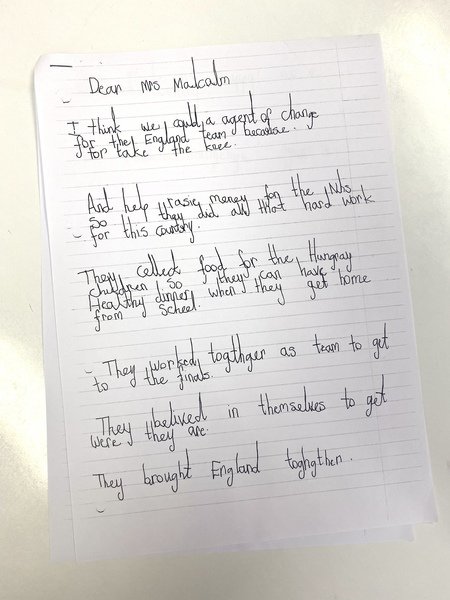 Dear Mrs Malcalm
I think we could a agent of change
for the England team because.
for take the knee.
And help rasie money for the Nhs
so they did all that hard work
for this country.
They called food for the Hungray
children so they can have
Healthy dinner when they get home
from School.
They worked togthger as team to get
to the finals.
They belived in themselves to get
were they are.
They brought England toghgther.